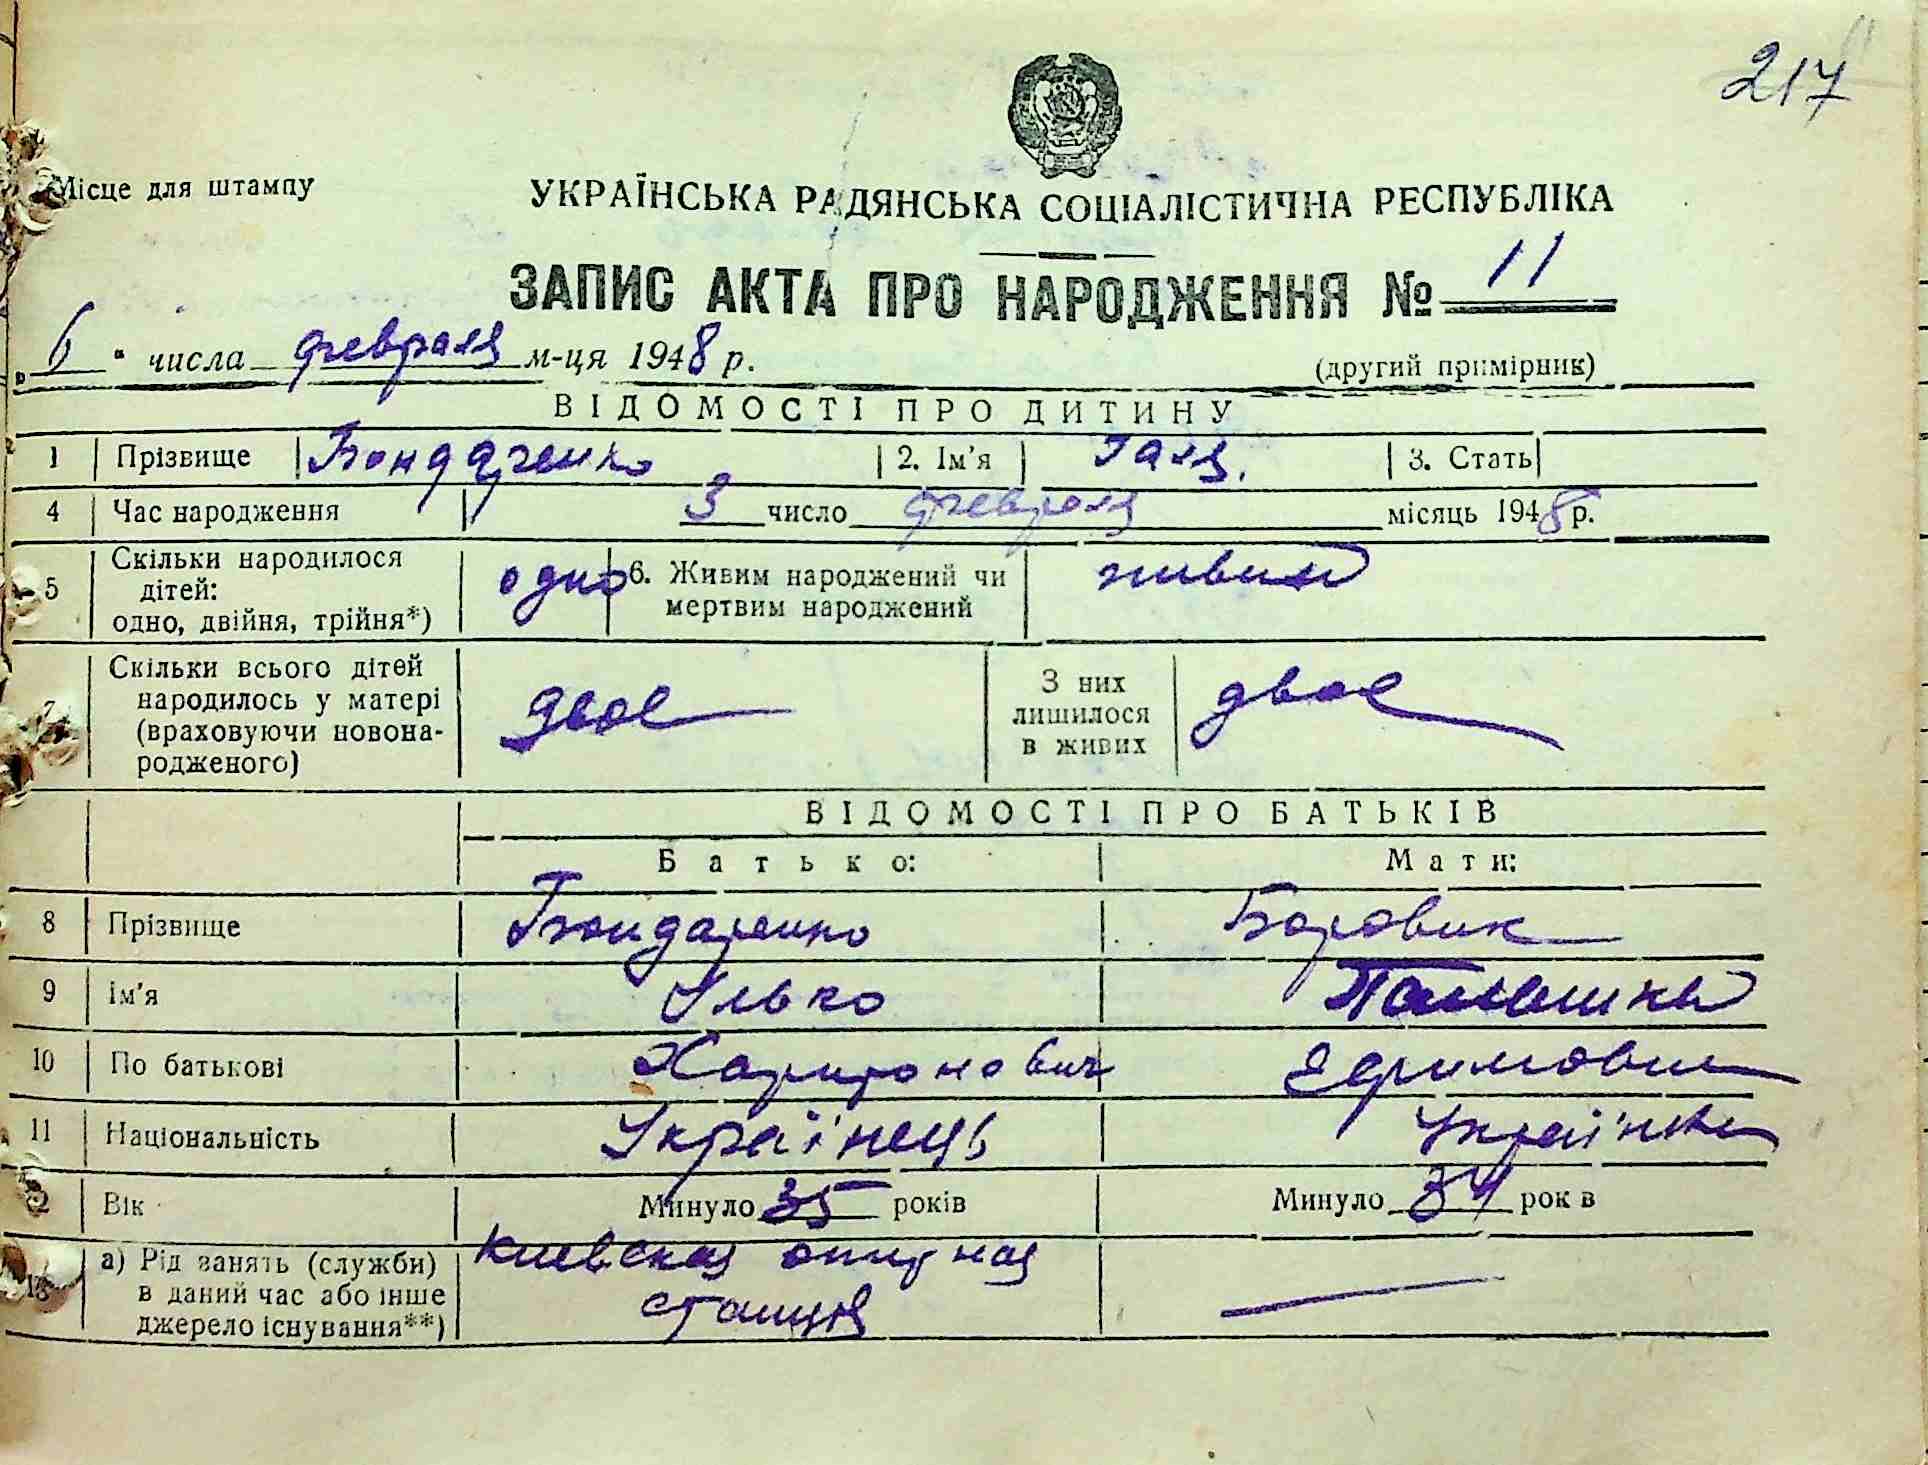 217
Місце для штампу
УКРАЇНСЬКА РАДЯНСЬКА СОЦІАЛІСТИЧНА РЕСПУБЛІКА
ЗАПИС АКТА ПРО НАРОДЖЕННЯ № 11
„ 6 “ числа февраля м-ця 1948 р.
(другий примірник)
ВІДОМОСТІ ПРО ДИТИНУ
1 Прізвище Бондаренко 2. Ім'я Галя. 3. Стать
4 Час народження 3 число февраля місяць 1948 р.
5 Скільки народилося дітей: одно, двійня, трійня*) одно 6. Живим народжений чи мертвим народжений живим
7 Скільки всього дітей народилось у матері (враховуючи новонародженого) двое З них лишилося в живих двое
ВІДОМОСТІ ПРО БАТЬКІВ
Батько: Мати:
8 Прізвище Бондаренко Боровик
9 Ім'я Улько
10 По батькові Харитонович Ефимовна
11 Національність Українець Українка
12 Вік Минуло 35 років Минуло 34 рок в
13 а) Рід занять (служби) в даний час або інше джерело існування**) Киевская опытная станция